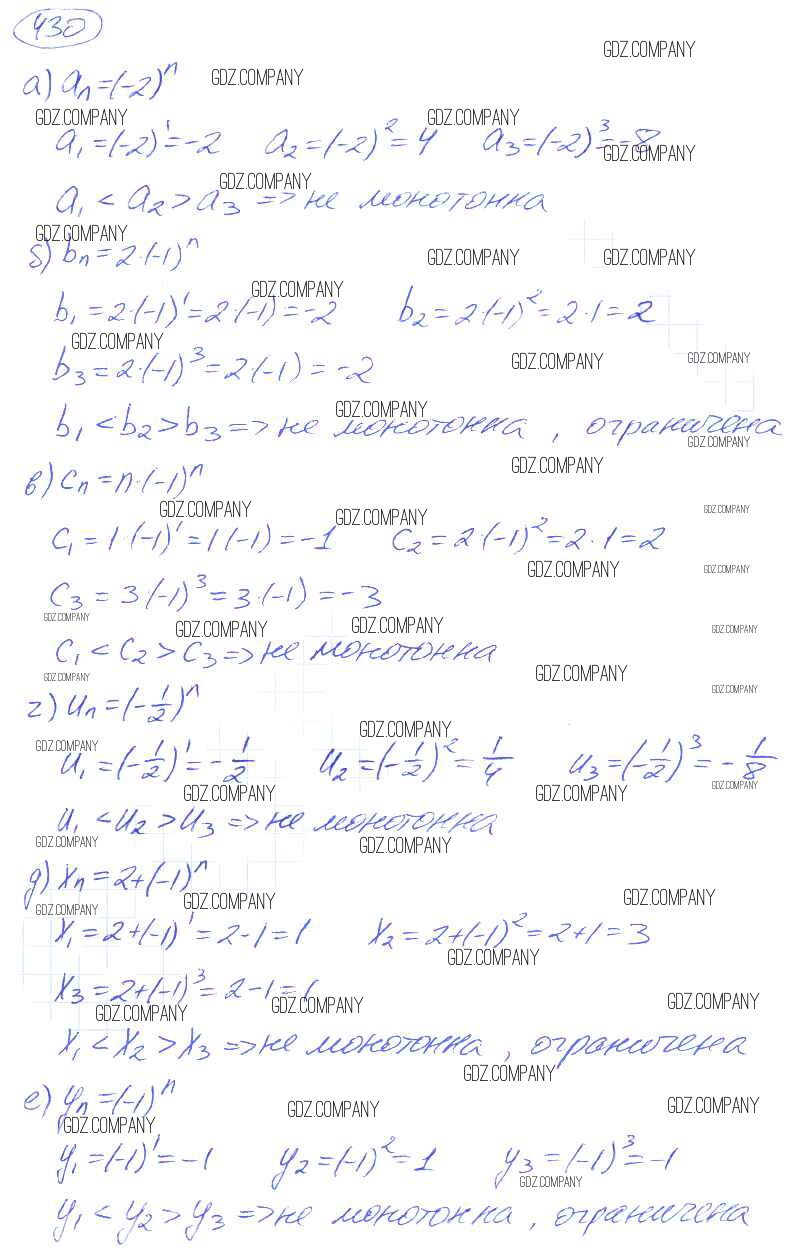 430
GDZ.COMPANY
а) aₙ=(-2)ⁿ GDZ.COMPANY
GDZ.COMPANY GDZ.COMPANY
a₁=(-2)¹=-2 a₂=(-2)²=4 a₃=(-2)³=-8
GDZ.COMPANY
GDZ.COMPANY
a₁<a₂>a₃ => не монотонна
GDZ.COMPANY
б) bₙ=2·(-1)ⁿ GDZ.COMPANY GDZ.COMPANY
GDZ.COMPANY
b₁=2·(-1)¹=2·(-1)=-2 b₂=2·(-1)²=2·1=2
GDZ.COMPANY
b₃=2·(-1)³=2·(-1)=-2 GDZ.COMPANY GDZ.COMPANY
GDZ.COMPANY
b₁<b₂>b₃=>не монотонна, ограничена
GDZ.COMPANY
GDZ.COMPANY
в) cₙ=n·(-1)ⁿ
GDZ.COMPANY GDZ.COMPANY GDZ.COMPANY
c₁=1·(-1)¹=1(-1)=-1 c₂=2·(-1)²=2·1=2
GDZ.COMPANY GDZ.COMPANY
c₃=3·(-1)³=3·(-1)=-3
GDZ.COMPANY GDZ.COMPANY GDZ.COMPANY GDZ.COMPANY
c₁<c₂>c₃=>не монотонна
GDZ.COMPANY GDZ.COMPANY GDZ.COMPANY
г) uₙ=(-1/2)ⁿ
GDZ.COMPANY
GDZ.COMPANY
u₁=(-1/2)¹=-1/2 u₂=(-1/2)²=1/4 u₃=(-1/2)³=-1/8
GDZ.COMPANY GDZ.COMPANY GDZ.COMPANY
u₁<u₂>u₃=>не монотонна
GDZ.COMPANY GDZ.COMPANY
д) xₙ=2+(-1)ⁿ
GDZ.COMPANY GDZ.COMPANY GDZ.COMPANY
x₁=2+(-1)¹=2-1=1 x₂=2+(-1)²=2+1=3
GDZ.COMPANY
x₃=2+(-1)³=2-1=1
GDZ.COMPANY GDZ.COMPANY GDZ.COMPANY
x₁<x₂>x₃=>не монотонна, ограничена
GDZ.COMPANY
е) yₙ=(-1)ⁿ
GDZ.COMPANY GDZ.COMPANY GDZ.COMPANY
y₁=(-1)¹=-1 y₂=(-1)²=1 y₃=(-1)³=-1
GDZ.COMPANY
y₁<y₂>y₃=>не монотонна, ограничена